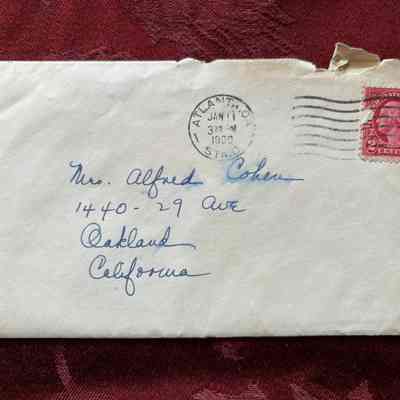 ATLANTA, GA.
JAN 11
3 PM
STA.
Mrs. Alfred Cohen
1440-29 Ave
Oakland
California
2 CENTS 2